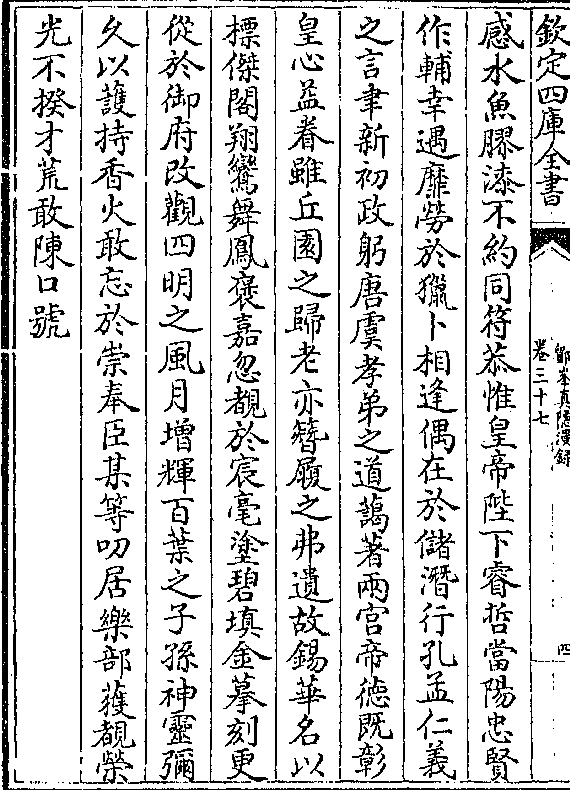 欽定四庫全書
鄮峯真隱漫錄
卷三十七
四
感水魚膠漆不約同符恭惟皇帝陛下睿哲當陽忠賢
作輔幸遇靡勞於獵卜相逢偶在於儲潛行孔孟仁義
之言聿新初政躬唐虞孝弟之道藹著兩宫帝徳既彰
皇心益眷雖丘園之歸老亦簪履之弗遺故錫華名以
標傑閣翔鸞舞鳳褒嘉忽覩於宸毫塗碧填金摹刻更
從於御府改觀四明之風月增輝百葉之子孫神靈彌
久以䕶持香火敢忘於崇奉臣某等叨居樂部獲覩榮
光不揆才荒敢陳口號